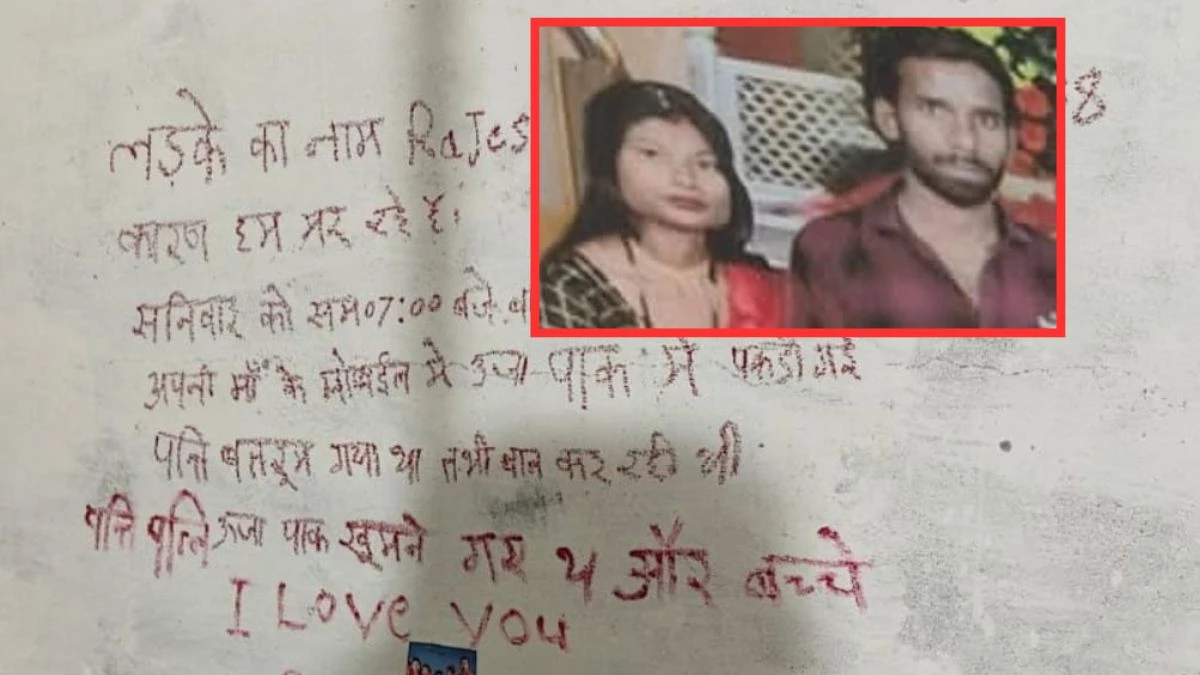 लड़के का नाम RaJes 8
कारण हम मर रहे है।
सनिवार को सम07:00 बजे
अपनी माँ के मोबाईल से उजा पाक में पकड़ी गई
पत्ति बातरूम गया था तभी बात कर रही थी
पत्ति पत्नि ऊर्जा पाक घूमने गए थे और बच्चे
I Love you